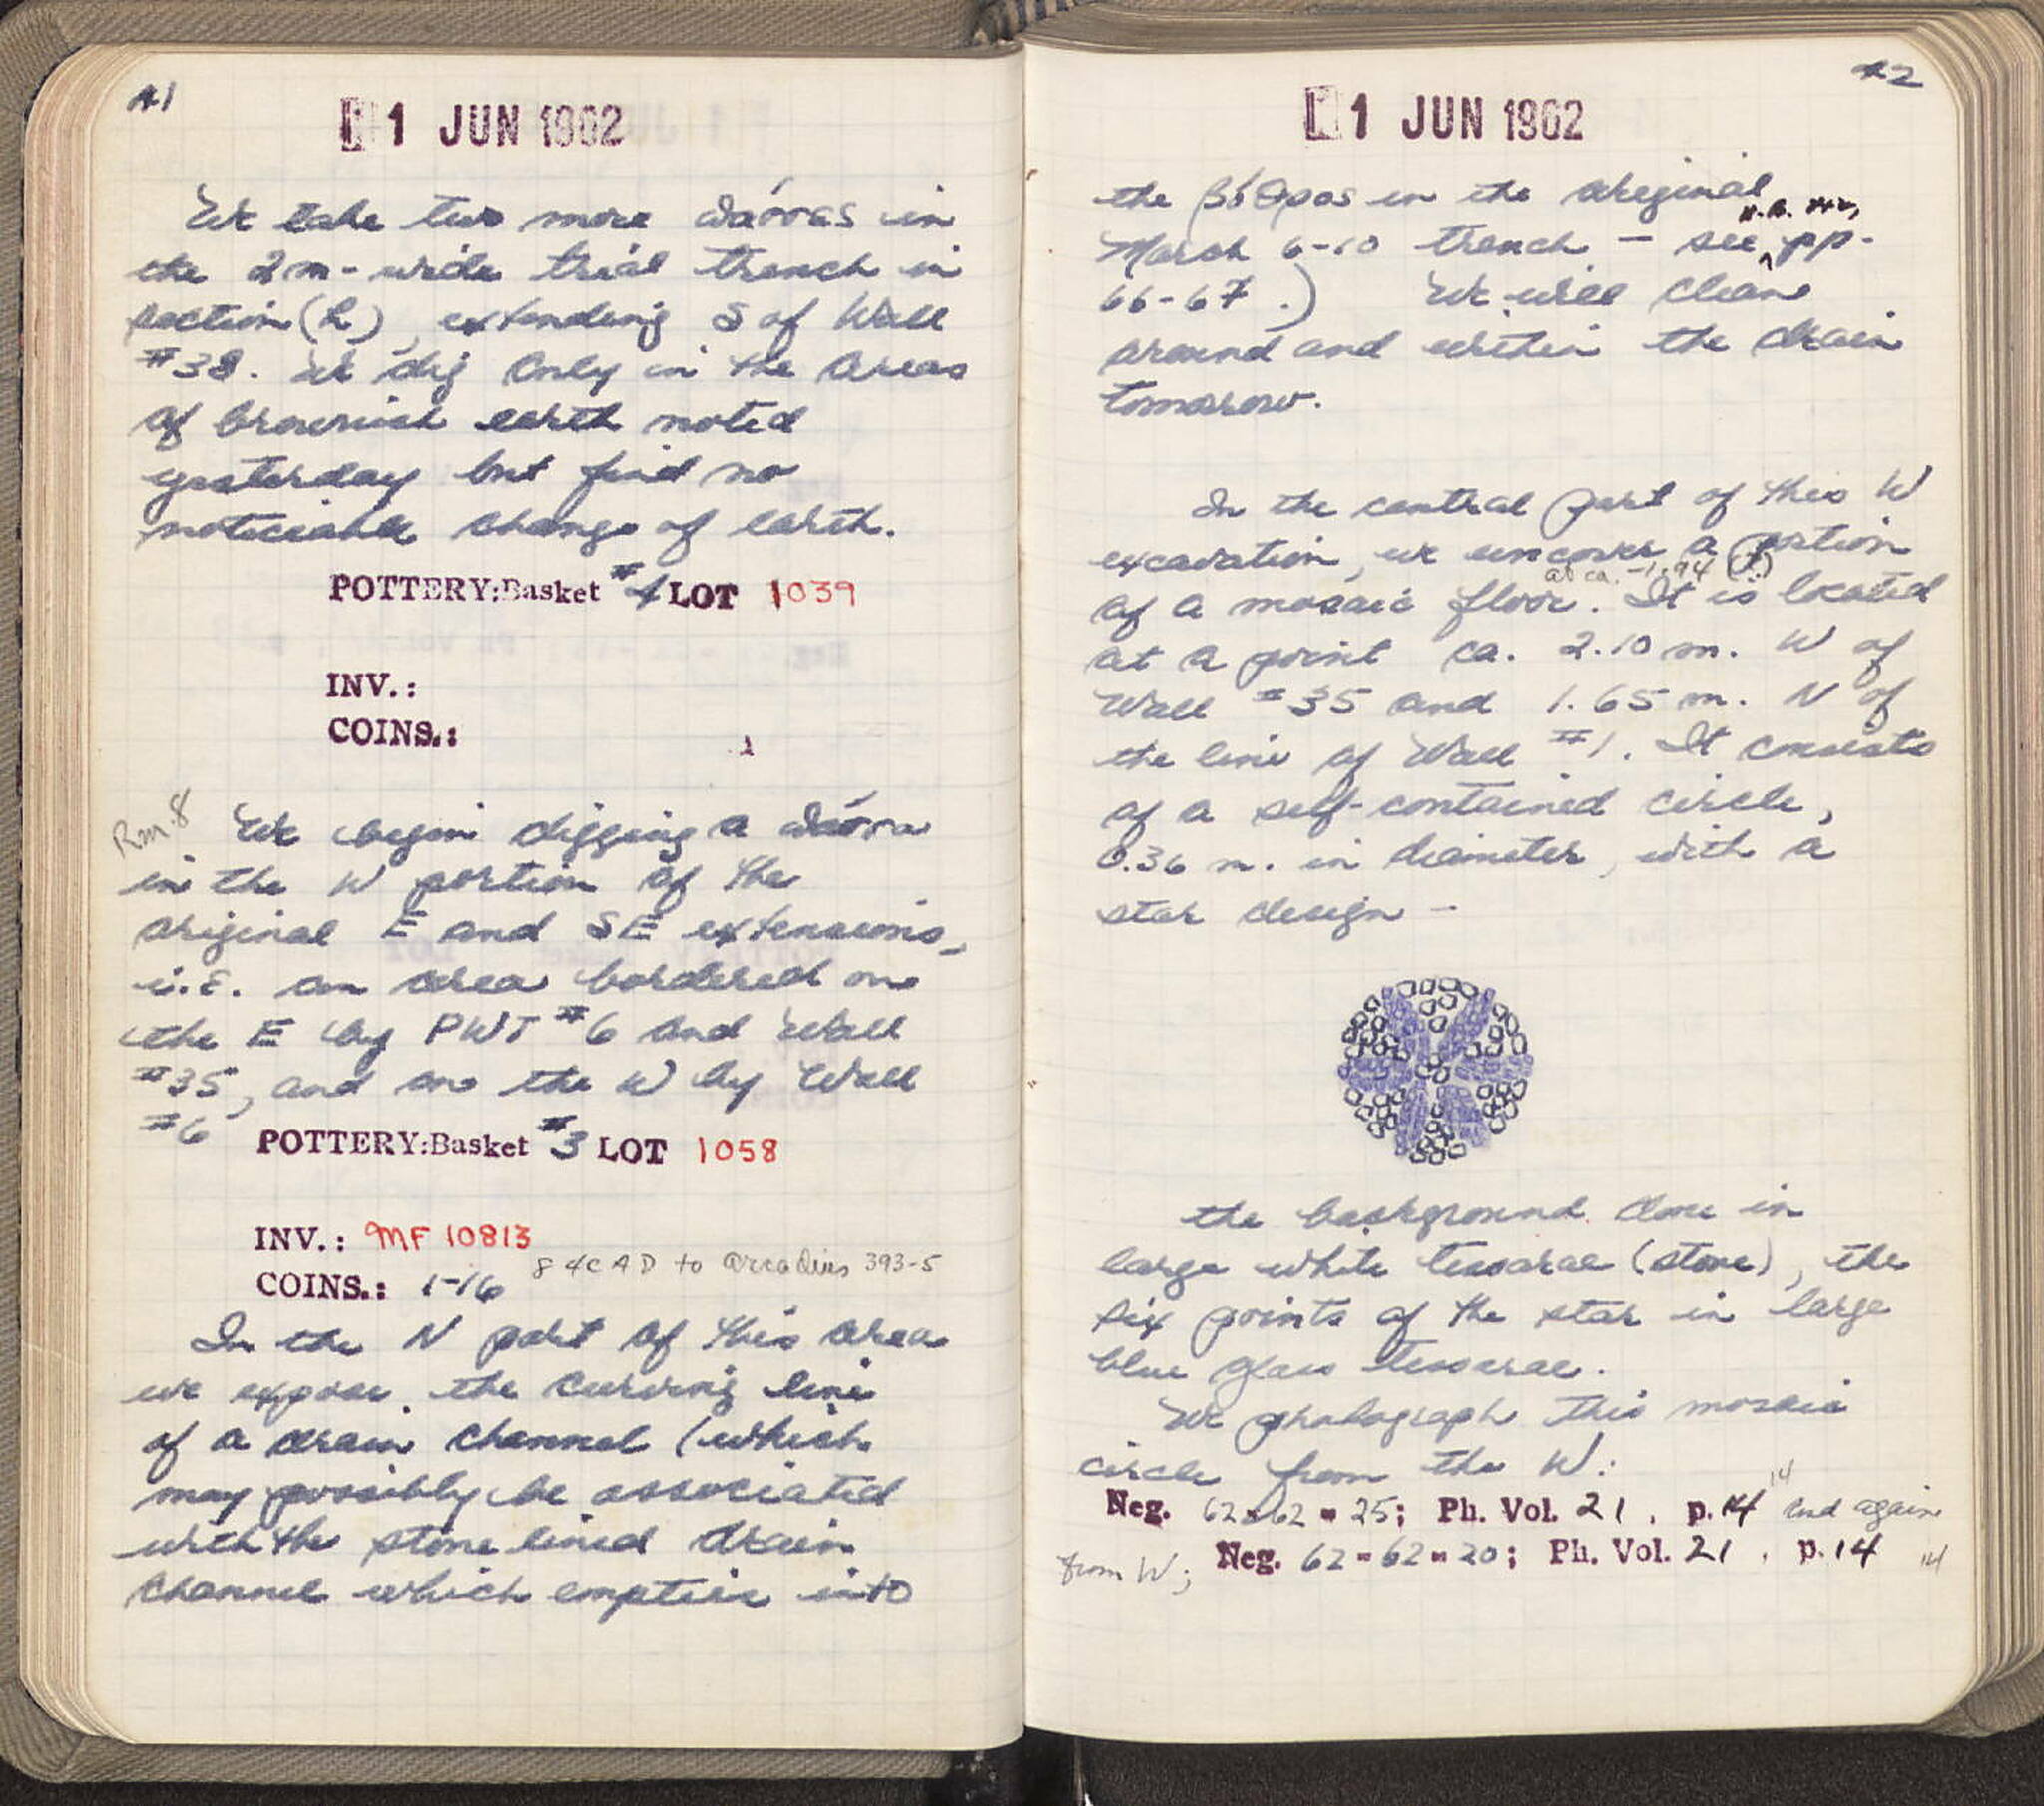 41
1 JUN 1962
We take two more πάσσες in
the 2m-wide trial trench in
section (h), extending S of Wall
#38. We dig only in the areas
of brownish earth noted
yesterday but find no
noticeable change of earth.
POTTERY:Basket #4 LOT 1039
INV.:
COINS.:
1
Rm. 8
We begin digging a πάσσα
in the W portion of the
original E and SE extensions,
i.e. an area bordered on
the E by PWT #6 and Wall
#35, and on the W by Wall
#6
POTTERY:Basket #3 LOT 1058
INV.: MF 10813
8 4c AD to Arcadius 393-5
COINS.: 1-16
In the N part of this area
we expose the curving line
of a drain channel (which
may possibly be associated
with the stone lined drain
channel which empties into
42
1 JUN 1962
the βόθρος in the original
N.B.
March 6-10 trench - see pp.
66-67.) We will clean
around and within the drain
tomorrow.
In the central part of this W
excavation, we uncover a portion
at ca. -1.94 (?)
of a mosaic floor. It is located
at a point ca. 2.10 m. W of
Wall #35 and 1.65 m. N of
the line of Wall #1. It consists
of a self-contained circle,
0.36 m. in diameter, with a
star design -
the background done in
large white tessarae (stone), the
six points of the star in large
blue glass tessarae.
We photograph this mosaic
circle from the W:
14
Neg. 62-62-25; Ph. Vol. 21, p.14 and again
from W; Neg. 62-62-20; Ph. Vol. 21, p.14 14